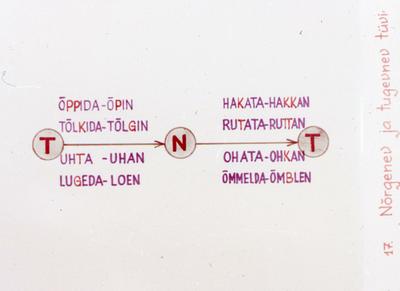 ÕPPIDA-ÕPIN
TÕLKIDA-TÕLGIN
UHTA -UHAN
LUGEDA-LOEN
T
N
T
HAKATA-HAKKAN
RUTATA-RUTTAN
OHATA-OHKAN
ÕMMELDA-ÕMBLEN
17. Nõrgenev ja tugevnev tüvi.